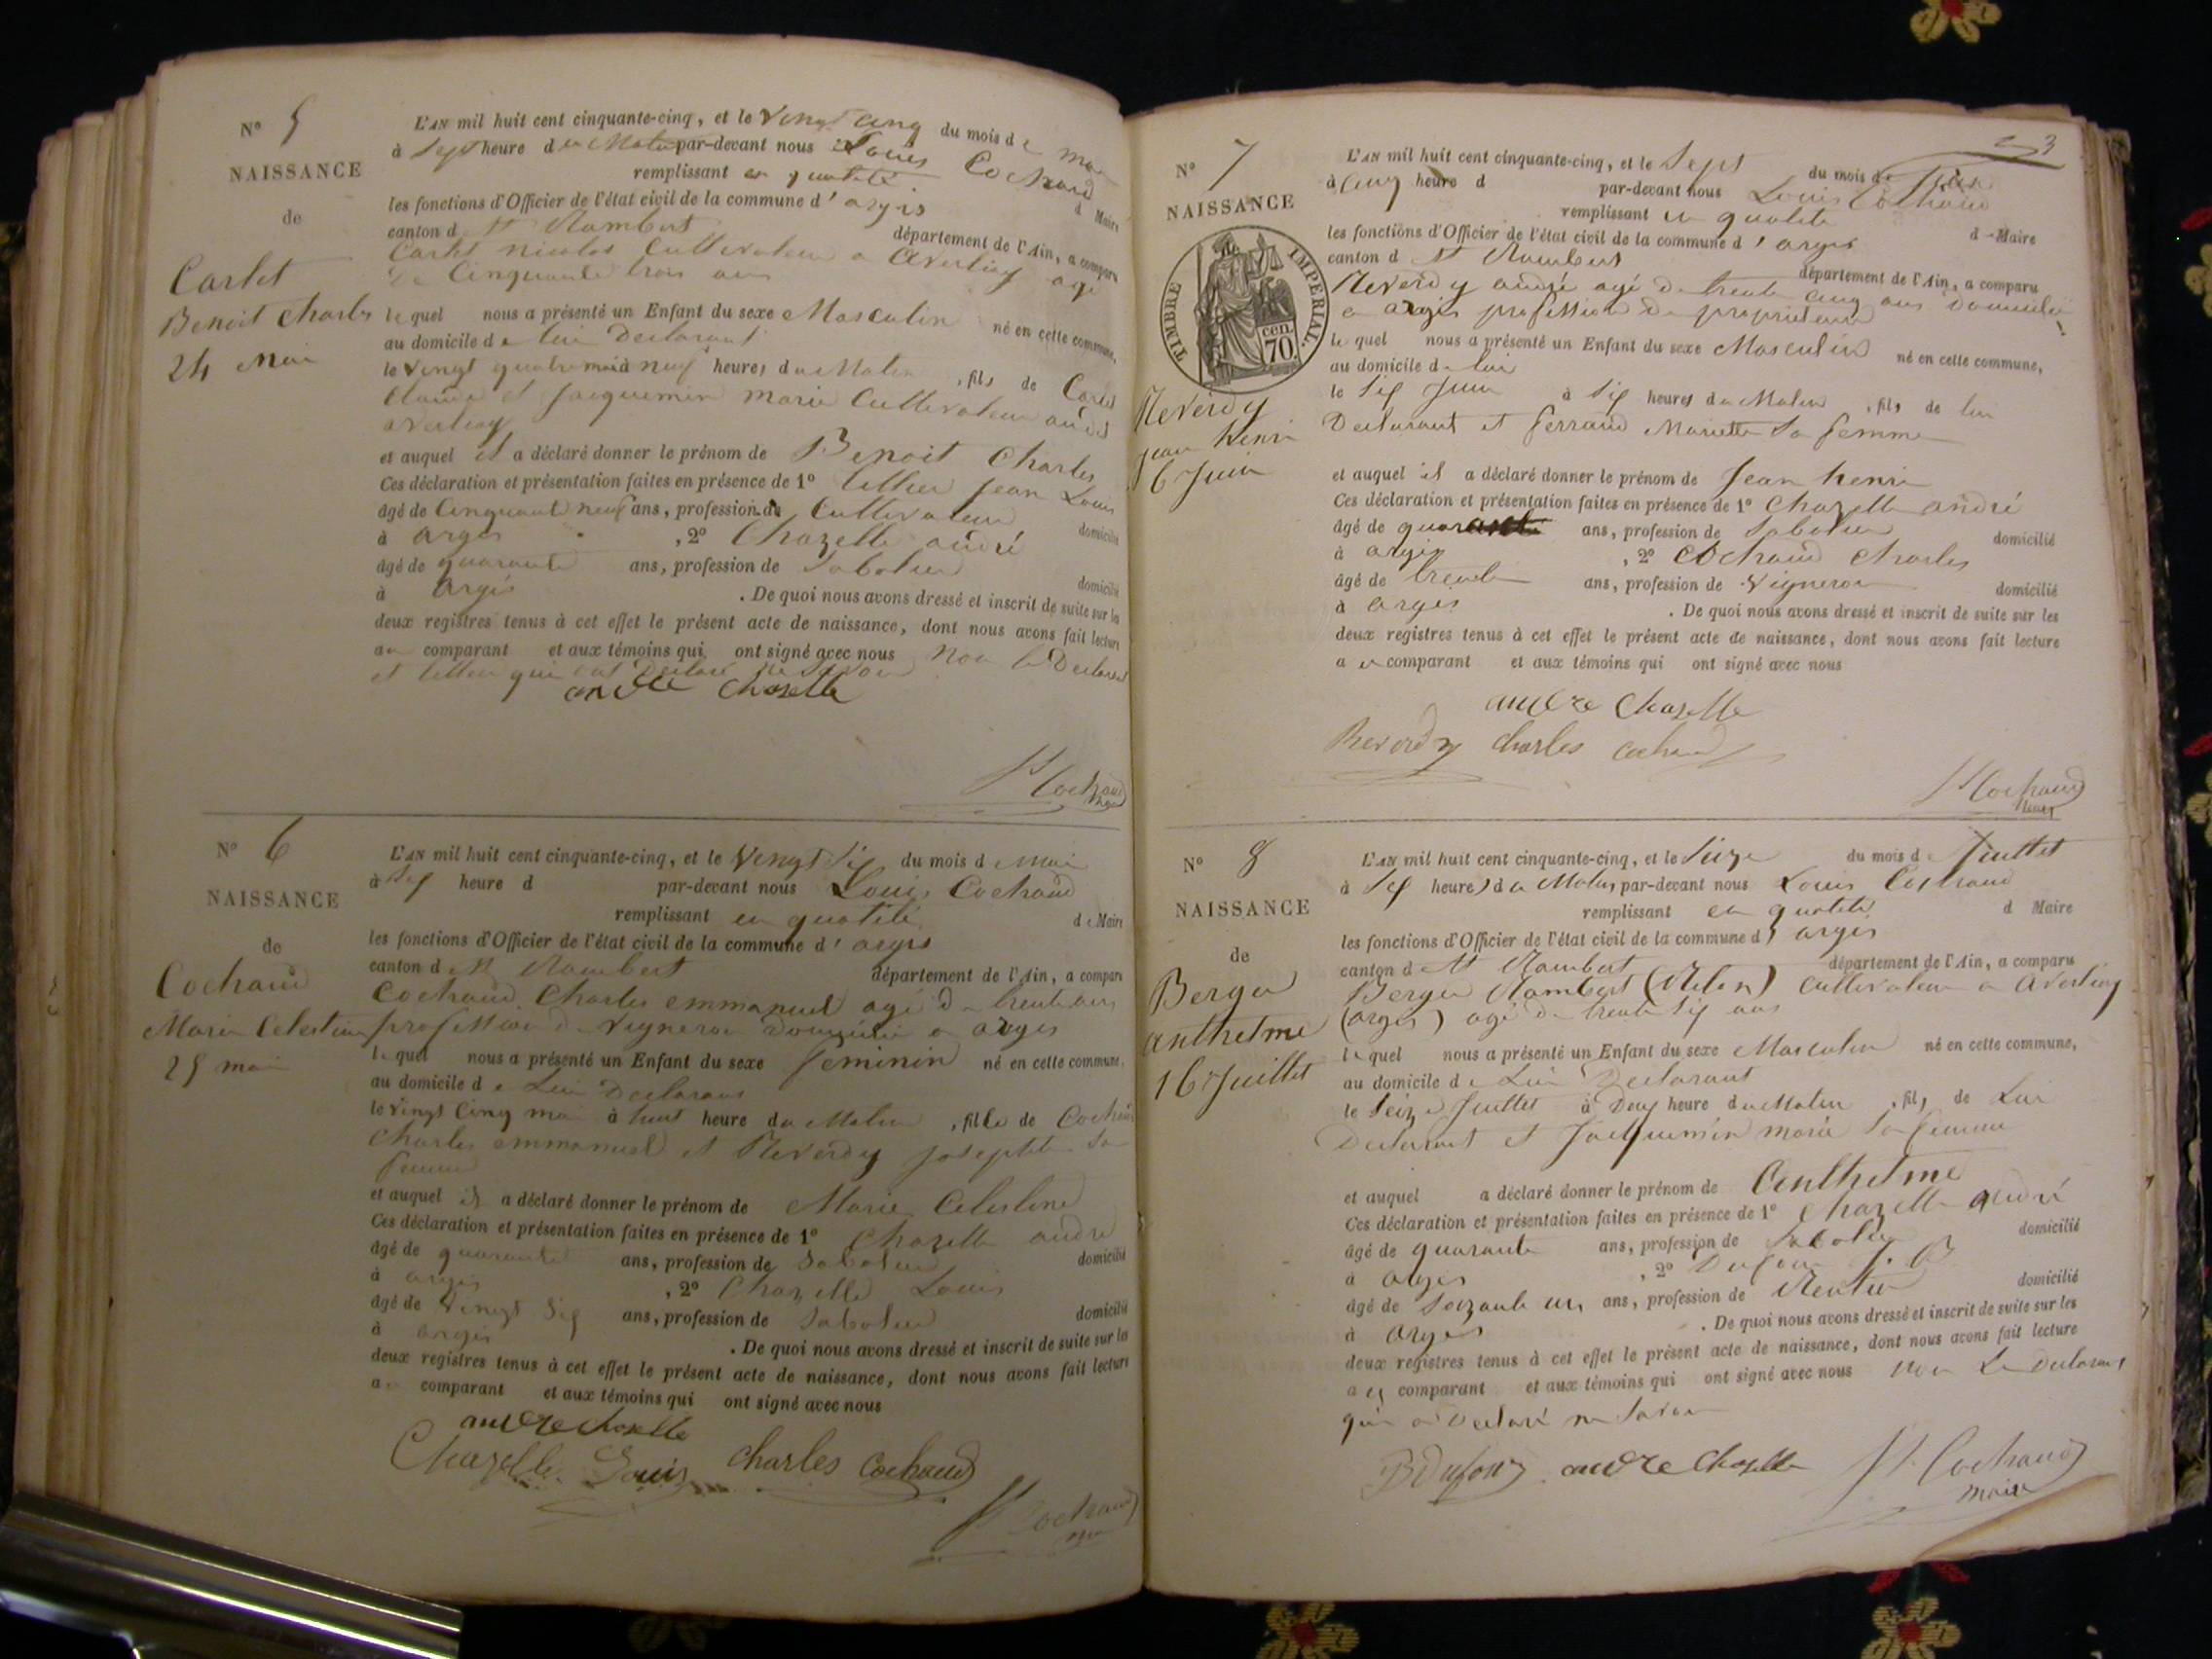 N° 5
NAISSANCE
de
Carlet
Benoit Charles
24 Mai
L'AN mil huit cent cinquante-cinq, et le Vingt cinq du mois de mai
à Sept heure du Matin par-devant nous Louis Cochaud
remplissant en qualité de Maire
les fonctions d'Officier de l'état civil de la commune d'argis
canton de St Rambert département de l'Ain, a comparu
Carlet nicolas Cultivateur a averliaz agé
de Cinquante trois ans
lequel nous a présenté un Enfant du sexe Masculin né en cette commune,
au domicile de lui Declarant
le Vingt quatre mai à neuf heures du Matin, fils de Carlet
Claude et Jacquemin marie Cultivateur audit
averliaz
et auquel il a déclaré donner le prénom de Benoit Charles
Ces déclaration et présentation faites en présence de 1° Jean Louis
âgé de Cinquante neuf ans, profession de Cultivateur domicilié
à argis, 2° Chazelle andré
âgé de quarante ans, profession de Sabotier domicilié
à Argis. De quoi nous avons dressé et inscrit de suite sur les
deux registres tenus à cet effet le présent acte de naissance, dont nous avons fait lecture
au comparant et aux témoins qui ont signé avec nous Non le Declarant
et qui ont Declaré ne Savoir
andre Chazelle
Cochaud
maire
N° 6
NAISSANCE
de
Cochaud
Marie Celestine
25 mai
L'AN mil huit cent cinquante-cinq, et le Vingt Six du mois d Mai
à Six heure d par-devant nous Louis Cochaud
remplissant en qualité de Maire
les fonctions d'Officier de l'état civil de la commune d'argis
canton de St Rambert département de l'Ain, a comparu
Cochaud Charles emmanuel agé de trente ans
profession de Vigneron domicilié a argis
lequel nous a présenté un Enfant du sexe feminin né en cette commune,
au domicile de Lui Declarant
le Vingt Cinq mai à huit heure du Matin, fille de Cochaud
Charles emmanuel et Reverdy Josephte Sa
femme
et auquel il a déclaré donner le prénom de Marie Celestine
Ces déclaration et présentation faites en présence de 1° Chazelle andré
âgé de quarante ans, profession de Sabotier domicilié
à argis, 2° Chazelle Louis
âgé de Vingt Six ans, profession de Sabotier domicilié
à argis. De quoi nous avons dressé et inscrit de suite sur les
deux registres tenus à cet effet le présent acte de naissance, dont nous avons fait lecture
au comparant et aux témoins qui ont signé avec nous
andre chazelle
Chazelle Louis Charles Cochaud
Cochaud
3
N° 7
NAISSANCE
TIMBRE IMPERIAL.
70 cen.
Reverdy
jean henri
6 Juin
L'AN mil huit cent cinquante-cinq, et le Sept du mois de Juin
à Cinq heure d par-devant nous Louis Cochaud
remplissant en qualité de Maire
les fonctions d'Officier de l'état civil de la commune d'argis
canton d St Rambert département de l'Ain, a comparu
Reverdy andré agé de trente cinq ans domicilié
a argis profession de proprietaire
lequel nous a présenté un Enfant du sexe Masculin né en cette commune,
au domicile de lui
le Six Juin à Six heures du Matin, fils de lui
Declarant et ferrand Mariette Sa femme
et auquel il a déclaré donner le prénom de Jean henri
Ces déclaration et présentation faites en présence de 1° Chazelle andré
âgé de quarante ans, profession de Sabotier domicilié
à argis, 2° Cochaud Charles
âgé de trente ans, profession de Vigneron domicilié
à argis. De quoi nous avons dressé et inscrit de suite sur les
deux registres tenus à cet effet le présent acte de naissance, dont nous avons fait lecture
au comparant et aux témoins qui ont signé avec nous
andre Chazelle
Reverdy charles cochaud
Cochaud
maire
N° 8
NAISSANCE
de
Berger
anthelme
16 Juillet
L'AN mil huit cent cinquante-cinq, et le Seize du mois de Juillet
à Six heures du Matin par-devant nous Louis Cochaud
remplissant en qualité d Maire
les fonctions d'Officier de l'état civil de la commune d'argis
canton de St Rambert département de l'Ain, a comparu
Berger Rambert Cultivateur a averliaz
(argis) agé de trente Six ans
lequel nous a présenté un Enfant du sexe Masculin né en cette commune,
au domicile de Lui Declarant
le Seize Juillet à Deux heure du Matin, fils de Lui
Declarant et Jacquemin marie Sa femme
et auquel a déclaré donner le prénom de Anthelme
Ces déclaration et présentation faites en présence de 1° Chazelle andré
âgé de quarante ans, profession de Sabotier domicilié
à argis, 2° Dufour J. B
âgé de Soixante un ans, profession de Rentier domicilié
à argis. De quoi nous avons dressé et inscrit de suite sur les
deux registres tenus à cet effet le présent acte de naissance, dont nous avons fait lecture
au comparant et aux témoins qui ont signé avec nous Non Le Declarant
qui a Declaré ne Savoir
BDufour andre Chazelle Cochaud
maire